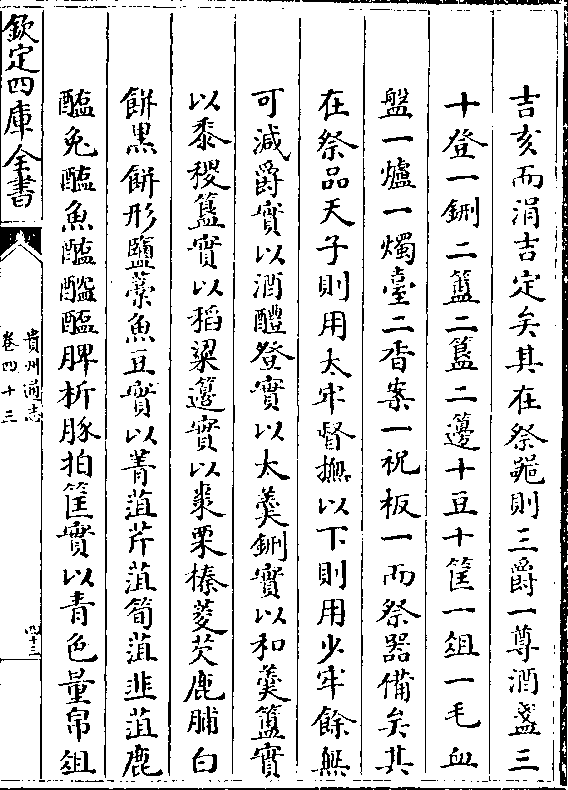 吉亥而涓吉定矣其在祭𦶜則三爵一尊酒盞三
十登一鉶二簠二簋二籩十豆十筐一俎一毛血
盤一爐一燭臺二香案一祝板一而祭器備矣其
在祭品天子則用太牢督撫以下則用少牢餘無
可減爵實以酒醴登實以太羮鉶實以和羮簠實
以黍稷簋實以稻粱籩實以棗栗榛菱芡鹿脯白
餅黒餅形鹽藁魚豆實以菁菹芹菹筍菹韭菹鹿
醢兔醢魚醢醓醢脾析豚拍筐實以青色量帛俎
欽定四庫全書
貴州通志
卷四十三
四十三